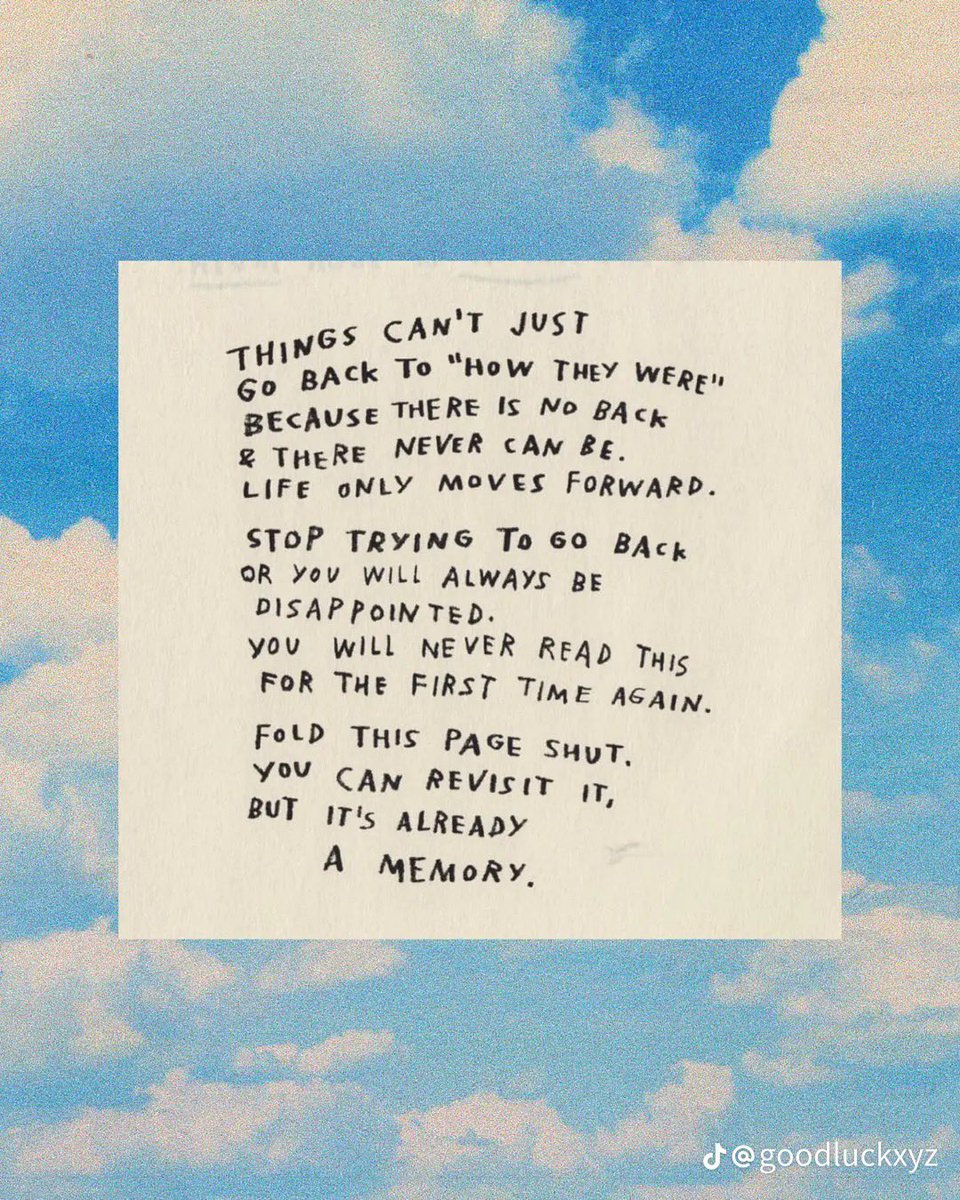 THINGS CAN'T JUST
GO BACK TO "HOW THEY WERE"
BECAUSE THERE IS NO BACK
& THERE NEVER CAN BE.
LIFE ONLY MOVES FORWARD.
STOP TRYING TO GO BACK
OR YOU WILL ALWAYS BE
DISAPPOINTED.
YOU WILL NEVER READ THIS
FOR THE FIRST TIME AGAIN.
FOLD THIS PAGE SHUT.
YOU CAN REVISIT IT,
BUT IT'S ALREADY
A MEMORY.
@goodluckxyz